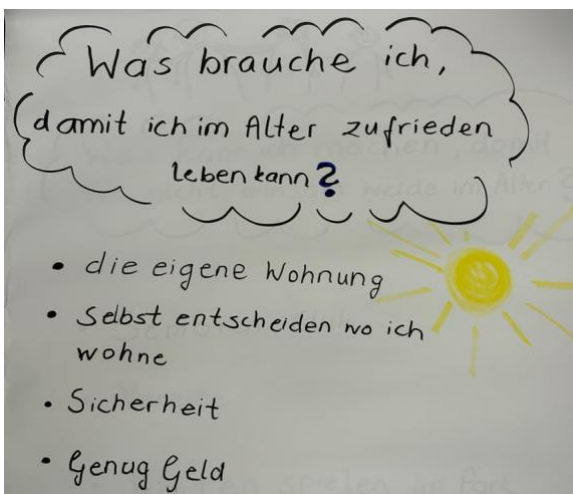 Was brauche ich,
damit ich im Alter zufrieden
leben kann?
• die eigene Wohnung
• Selbst entscheiden wo ich
wohne
• Sicherheit
• Genug Geld